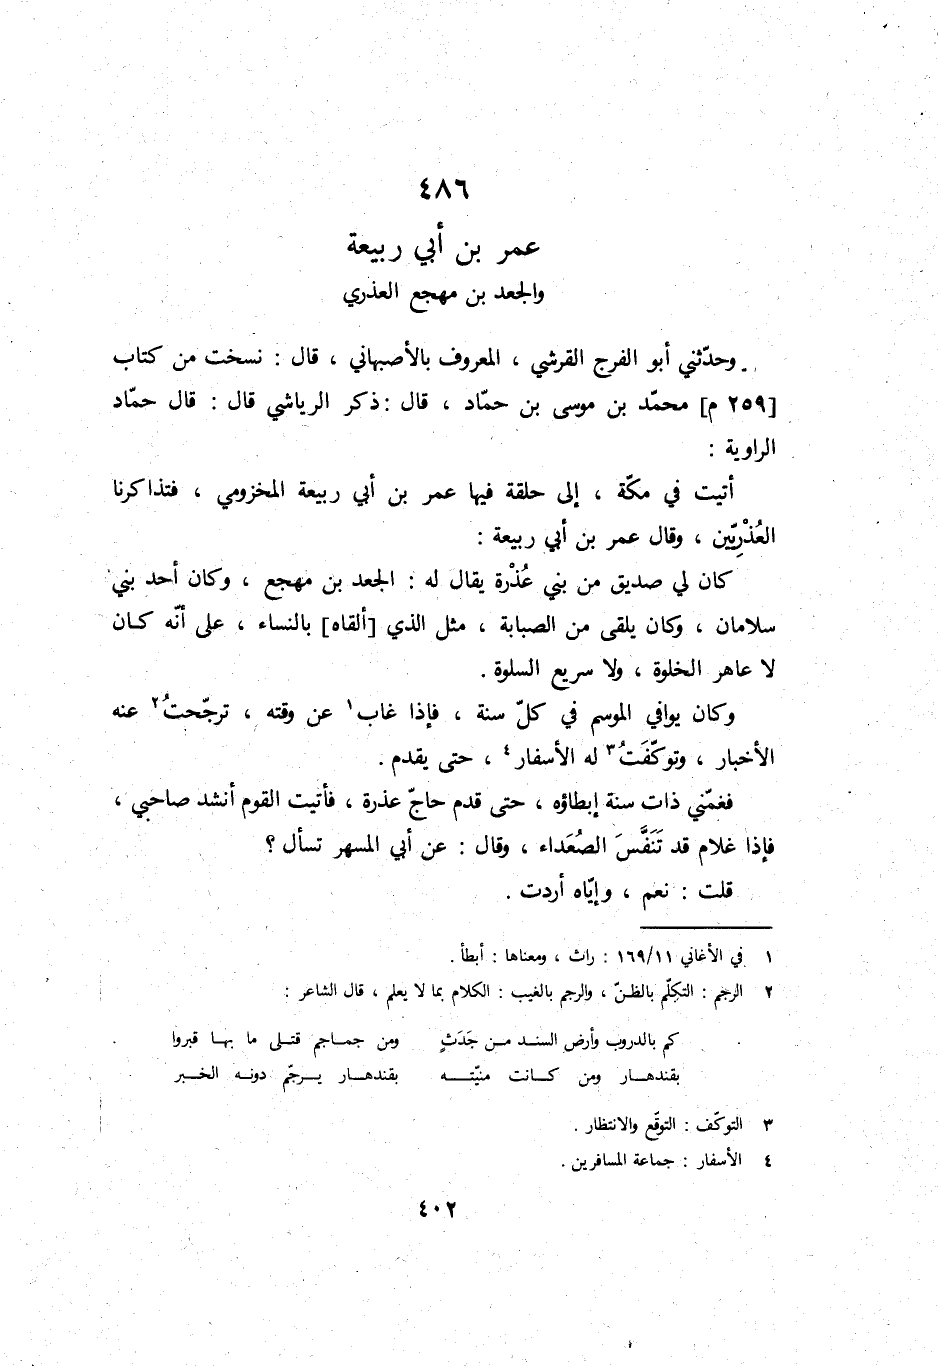 ٤٨٦
عمر بن أبي ربيعة
والجعد بن مهجع العذري
وحدّثني أبو الفرج القرشي ، المعروف بالأصبهاني ، قال : نسخت من كتاب
[٢٥٩ م] محمّد بن موسى بن حمّاد ، قال : ذكر الرياشي قال : قال حمّاد
الراوية :
أتيت في مكّة ، إلى حلقة فيها عمر بن أبي ربيعة المخزومي ، فتذاكرنا
العُذْرِيّين ، وقال عمر بن أبي ربيعة :
كان لي صديق من بني عُذْرة يقال له : الجعد بن مهجع ، وكان أحد بني
سلامان ، وكان يلقى من الصبابة ، مثل الذي [ألقاه] بالنساء ، على أنّه كان
لا عاهر الخلوة ، ولا سريع السلوة .
وكان يوافي الموسم في كلّ سنة ، فإذا غاب١ عن وقته ، ترجّحتُ٢ عنه
الأخبار ، وتوكّفَتُ٣ له الأسفار٤ ، حتى يقدم .
فغمّني ذات سنة إبطاؤه ، حتى قدم حاجّ عذرة ، فأتيت القوم أنشد صاحبي ،
فإذا غلام قد تَنَفَّسَ الصُعَداء ، وقال : عن أبي المسهر تسأل ؟
قلت : نعم ، وإيّاه أردت .
١ في الأغاني ١٦٩/١١ : راث ، ومعناها : أبطأ .
٢ الرجم : التكلّم بالظنّ ، والرجم بالغيب : الكلام بما لا يعلم ، قال الشاعر :
كم بالدروب وأرض السند من جَدَثٍ ومن جماجم قتلى ما بها قبروا
بقندهار ومن كانت منيّته بقندهار يرجّم دونه الخبر
٣ التوكّف : التوقّع والانتظار .
٤ الأسفار : جماعة المسافرين .
٤٠٢